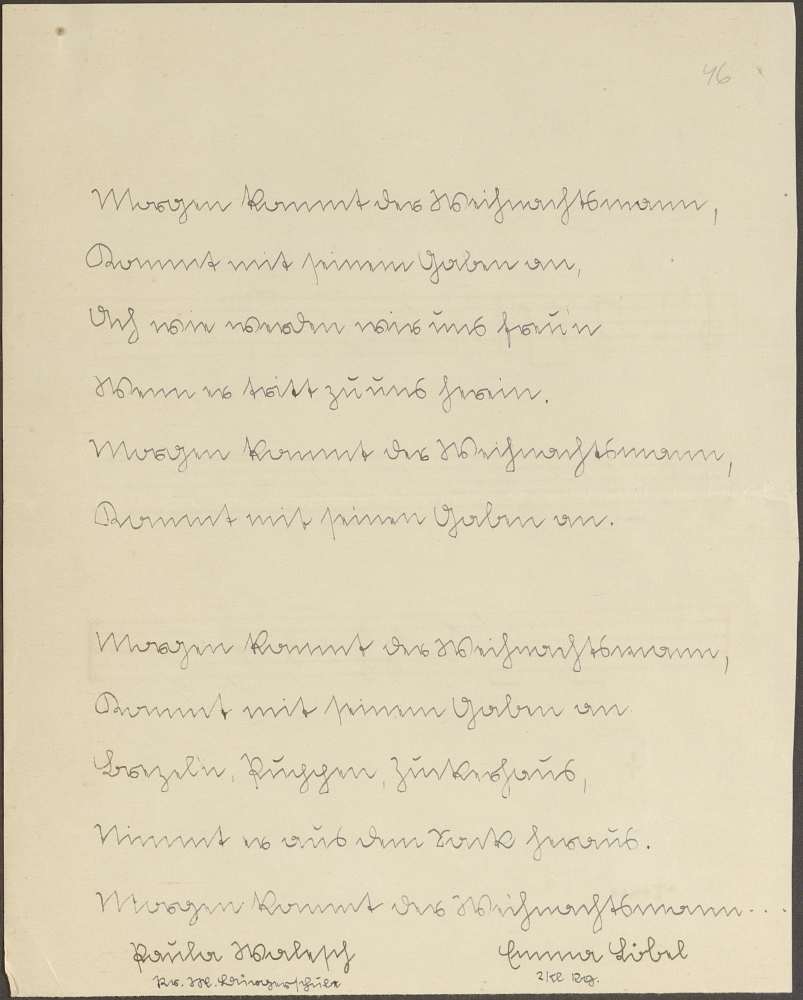 46
Morgen kommt der Weihnachtsmann,
Kommt mit seinem Gaben an,
Ach wie werden wir uns freu'n
Wenn er tritt zu uns herein.
Morgen kommt der Weihnachtsmann,
Kommt mit seinen Gaben an.
Morgen kommt der Weihnachtsmann,
Kommt mit seinem Gaben an
Brezeln, Puppen, Zuckerhaus,
Nimmt er aus dem Sack heraus.
Morgen kommt der Weihnachtsmann...
Paula Walesch Emma Löbel
2 Kl